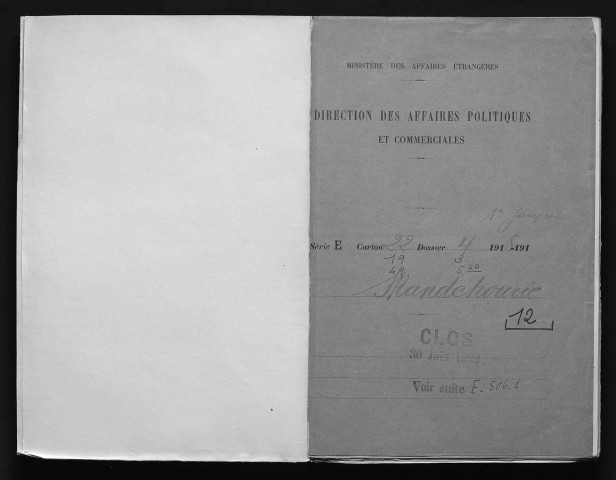 MINISTÈRE DES AFFAIRES ÉTRANGÈRES
DIRECTION DES AFFAIRES POLITIQUES
ET COMMERCIALES
Série E Carton 22 Dossier 4 191 -191
19 3
42 5
Mandchourie
12
CLOS
30 Juin 1922
Voir suite E. 506.1